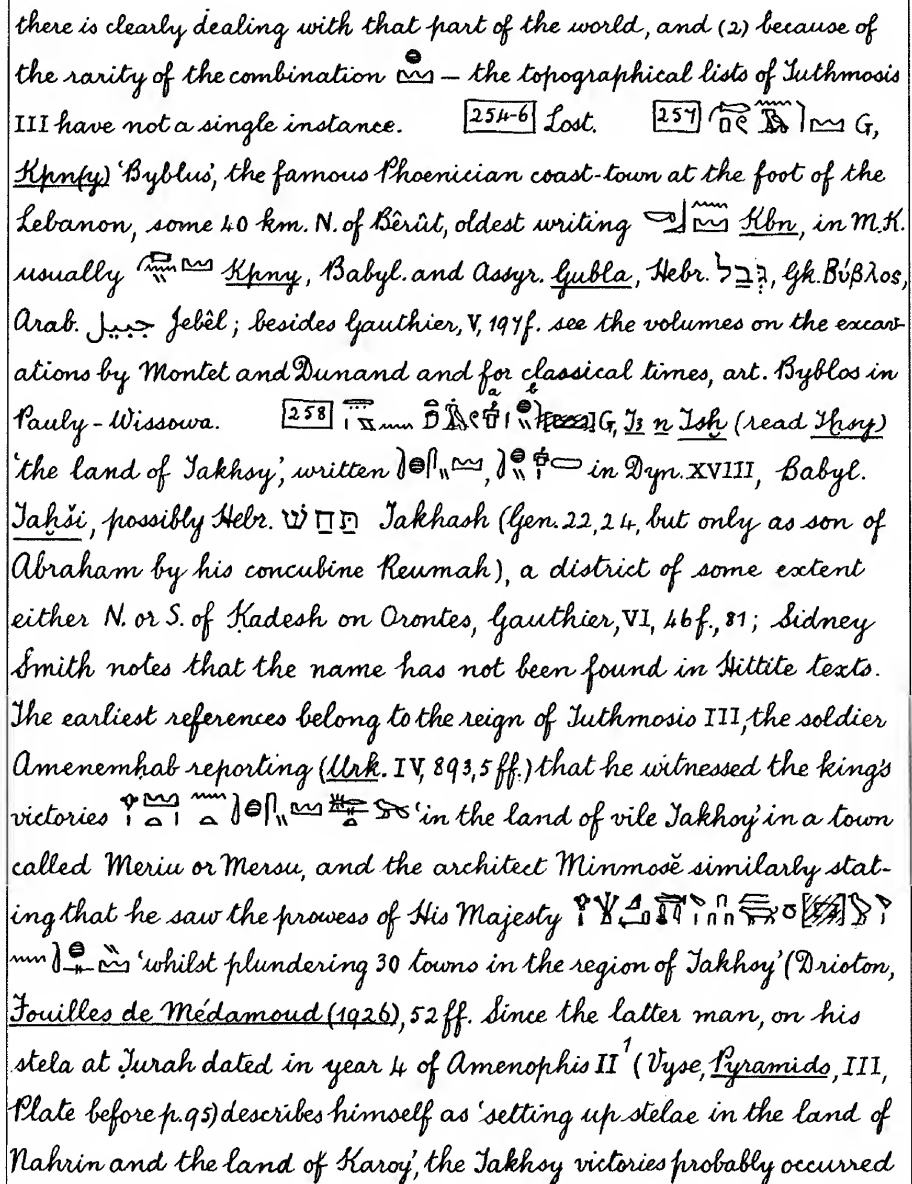 there is clearly dealing with that part of the world, and (2) because of
the rarity of the combination – the topographical lists of Tuthmosis
III have not a single instance. 254-6 Lost. 257 G,
Kpn(y) 'Byblus', the famous Phoenician coast-town at the foot of the
Lebanon, some 40 km. N. of Bêrût, oldest writing Kbn, in M.K.
usually Kpny, Babyl. and Assyr. Gubla, Hebr. גְּבַל, Gk. Βύβλος,
Arab. جبيل Jebêl; besides Gauthier, V, 197f. see the volumes on the excav-
ations by Montet and Dunand and for classical times, art. Byblos in
Pauly-Wissowa. 258 a b G, T3 n Tsḫ (read Tḫsy)
'the land of Takhsy', written in Dyn. XVIII, Babyl.
Taḫši, possibly Hebr. תַּחַשׁ Takhash (Gen. 22, 24, but only as son of
Abraham by his concubine Reumah), a district of some extent
either N. or S. of Ḳadesh on Orontes, Gauthier, VI, 46f., 81; Sidney
Smith notes that the name has not been found in Hittite texts.
The earliest references belong to the reign of Tuthmosis III, the soldier
Amenemḥab reporting (Urk. IV, 893,5 ff.) that he witnessed the king's
victories 'in the land of vile Takhsy' in a town
called Meriu or Mersu, and the architect Minmosĕ similarly stat-
ing that he saw the prowess of His Majesty
'whilst plundering 30 towns in the region of Takhsy' (Drioton,
Fouilles de Médamoud (1926), 52 ff. Since the latter man, on his
stela at Ṭurah dated in year 4 of Amenophis II¹ (Vyse, Pyramids, III,
Plate before p. 95) describes himself as 'setting up stelae in the land of
Nahrin and the land of Karoy', the Takhsy victories probably occurred